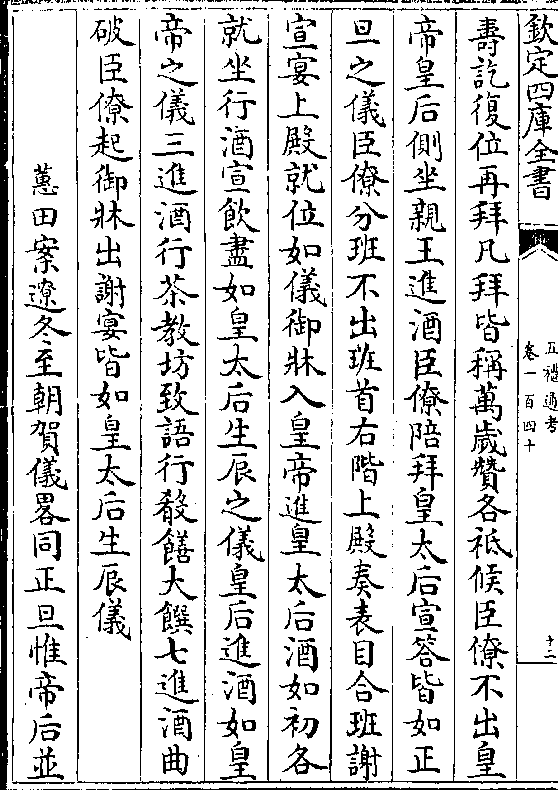 欽定四庫全書
五禮通考
卷一百四十
十二
壽訖復位再拜凡拜皆稱萬歲贊各祗候臣僚不出皇
帝皇后側坐親王進酒臣僚陪拜皇太后宣答皆如正
旦之儀臣僚分班不出班首右階上殿奏表目合班謝
宣宴上殿就位如儀御牀入皇帝進皇太后酒如初各
就坐行酒宣飲盡如皇太后生辰之儀皇后進酒如皇
帝之儀三進酒行茶教坊致語行殽饍大饌七進酒曲
破臣僚起御牀出謝宴皆如皇太后生辰儀
蕙田案遼冬至朝賀儀畧同正旦惟帝后並